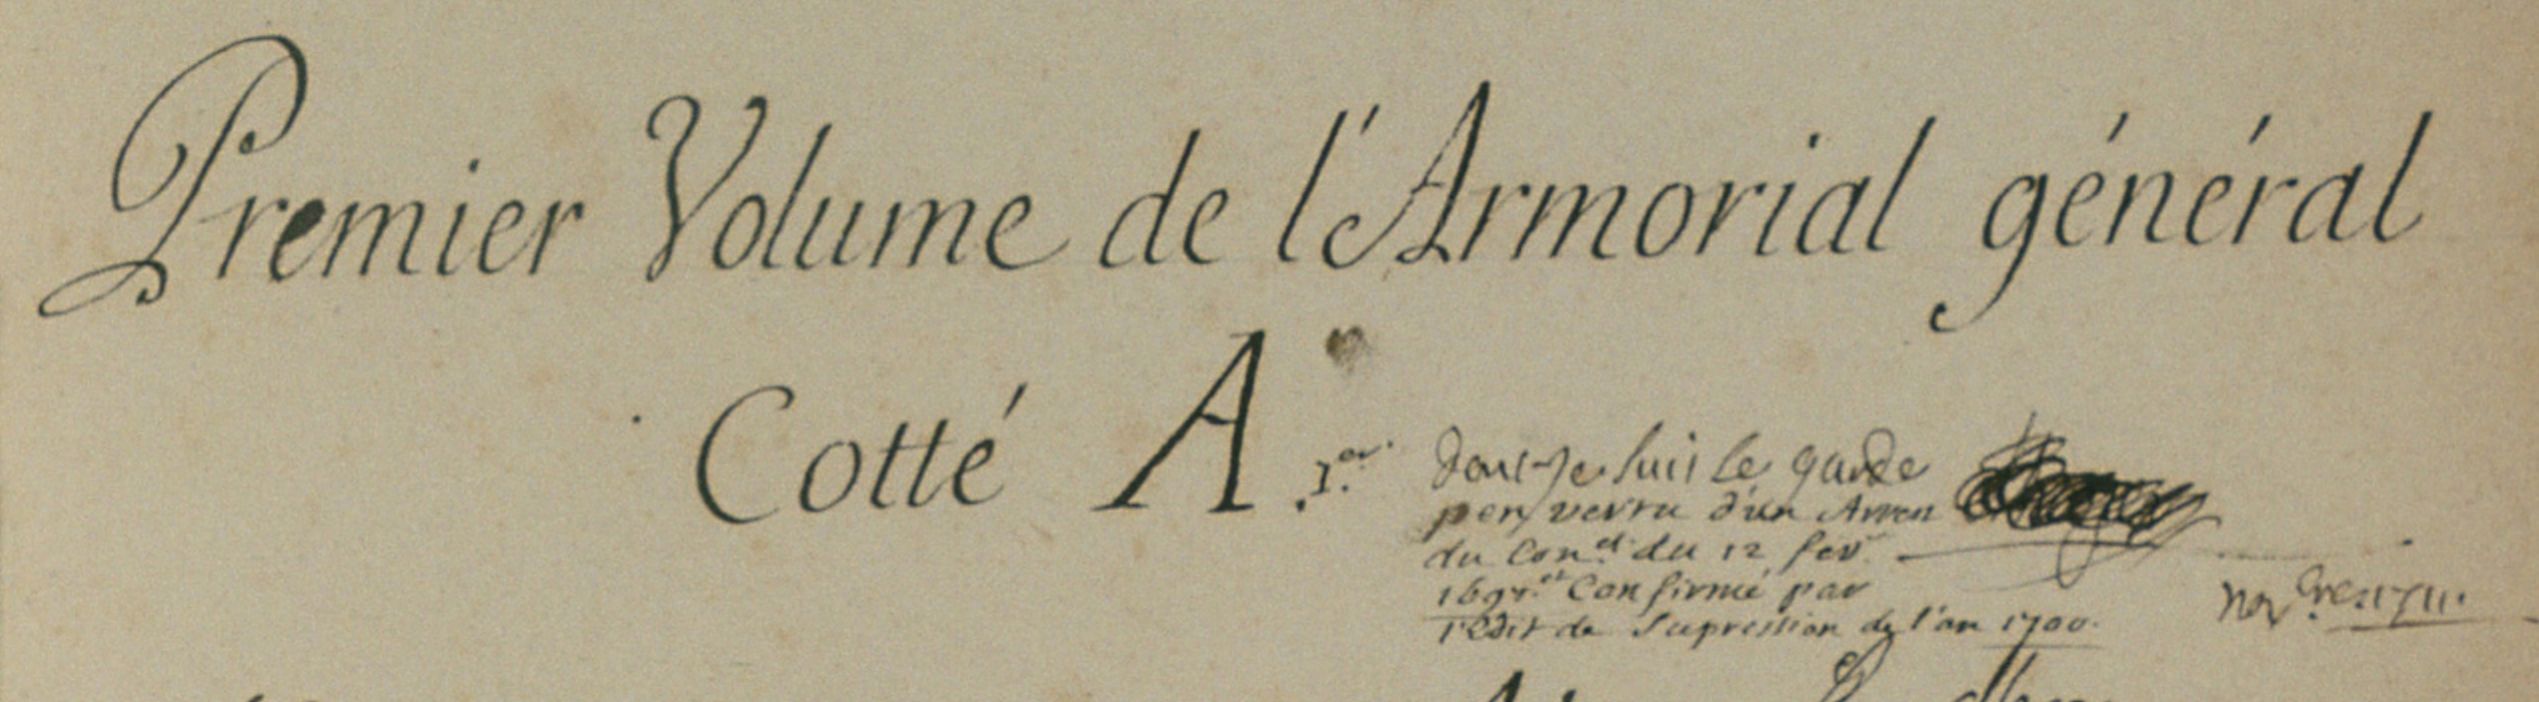 Premier Volume de l'Armorial général
Cotté A .1.er
dont Je suis le garde
par vertu d'un Arrest
du Con.el du 12 fev
Confirmé par
l'Edit de Supression de l'an 1700.
nov.bre 1711.